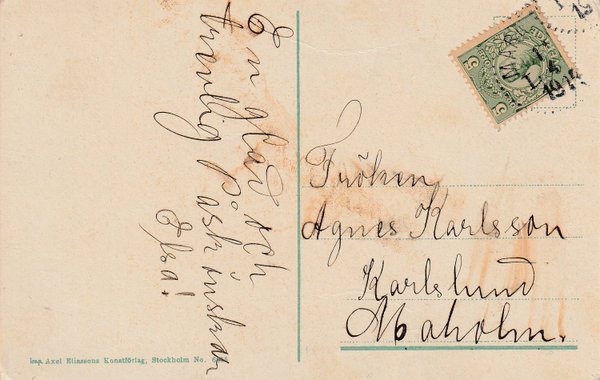 En glad och
trevlig Påsk önskar
Elsa!
Fröken
Agnes Karlsson
Karlslund
Maholm.
Imp. Axel Eliassons Konstförlag, Stockholm No.
5
5
1914